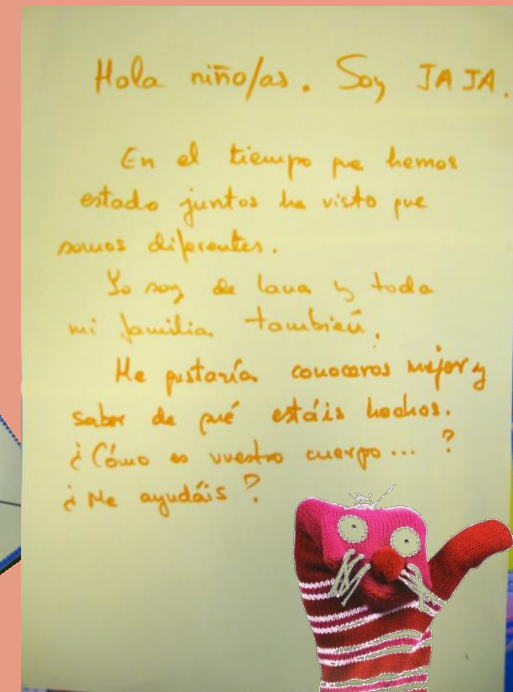 Hola niño/as. Soy JAJA.
En el tiempo que hemos
estado juntos he visto que
somos diferentes.
Yo soy de lana y toda
mi familia también.
Me gustaría conoceros mejor y
saber de qué estáis hechos.
¿Cómo es vuestro cuerpo...?
¿Me ayudáis?